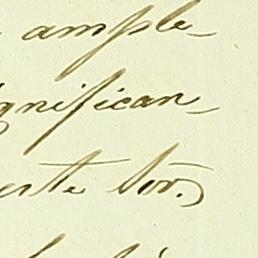 ample
gnifican
ente Sor.